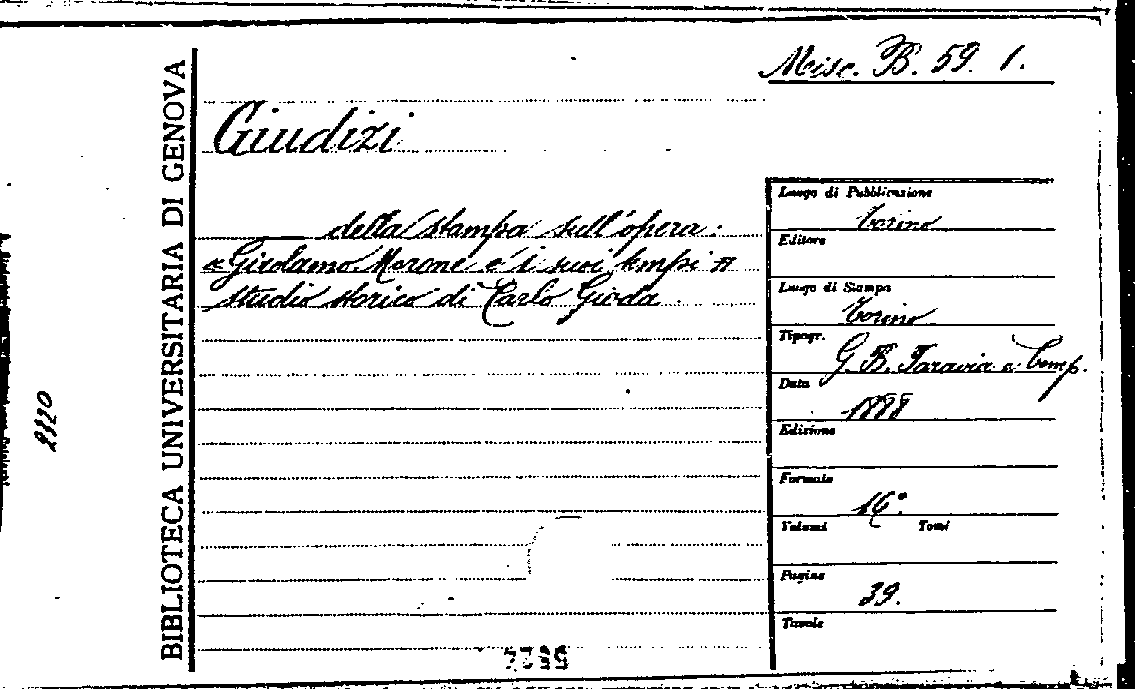 Misc. B. 59. 1.
BIBLIOTECA UNIVERSITARIA DI GENOVA
Giudizi
della stampa sull'opera:
"Girolamo Morone e i suoi tempi"
studio storico di Carlo Gioda
Luogo di Pubblicazione
Torino
Editore
Luogo di Stampa
Torino
Tipogr.
G. B. Paravia e Comp.
Data
1888
Edizione
Formato
16°
Volumi Tomi
Pagine
39.
Tavole